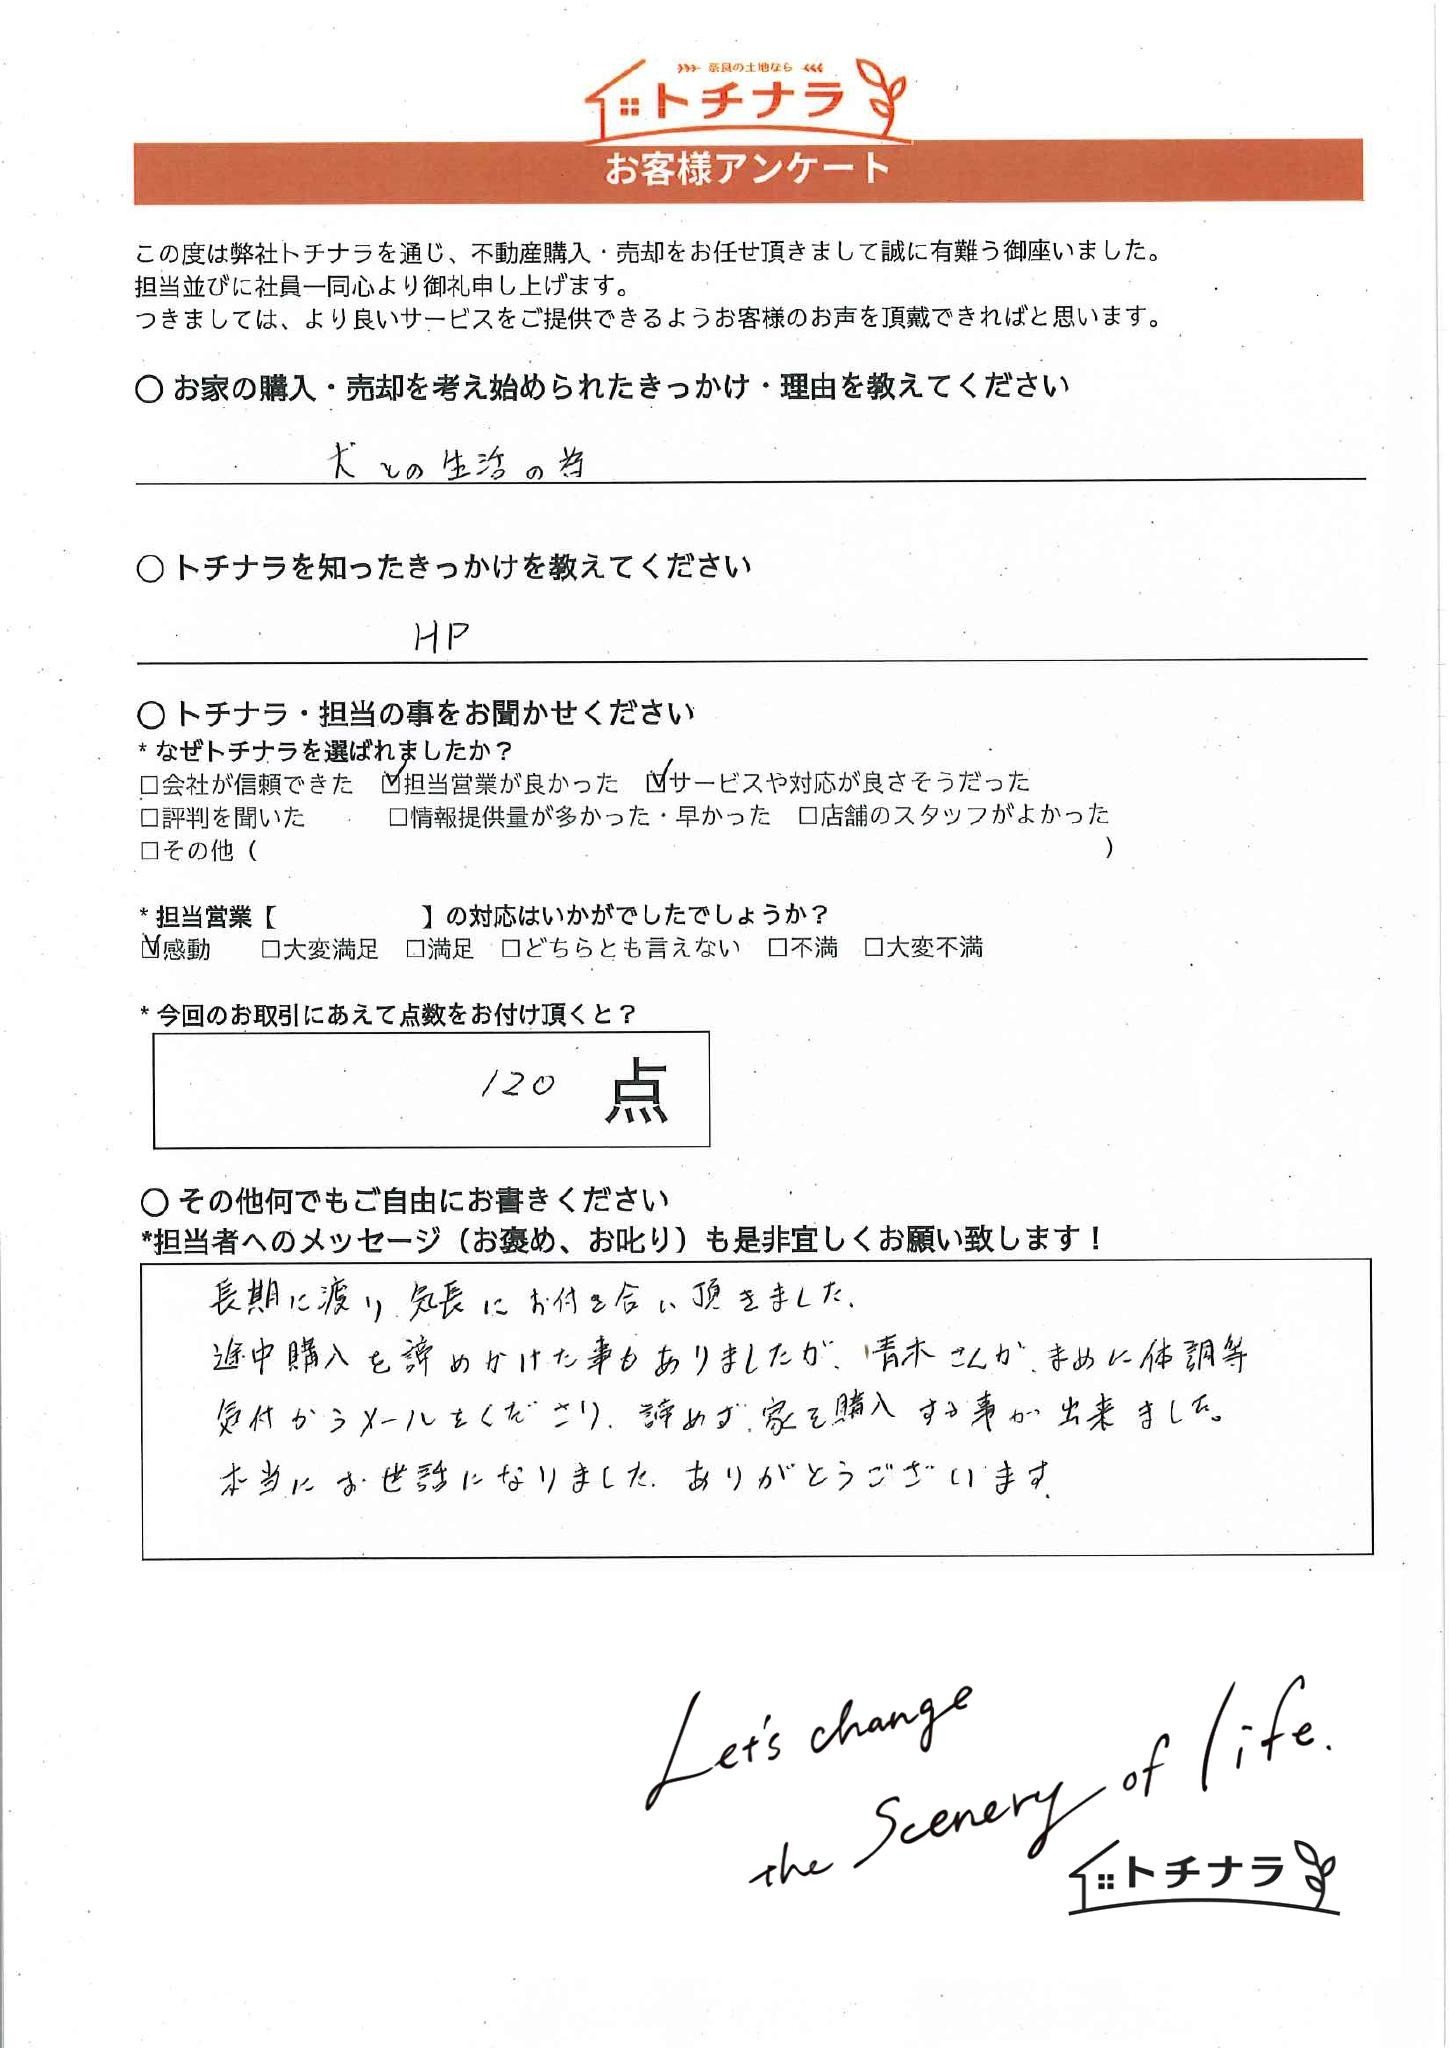 奈良の土地なら
トチナラ
お客様アンケート
この度は弊社トチナラを通じ、不動産購入・売却をお任せ頂きまして誠に有難う御座いました。
担当並びに社員一同心より御礼申し上げます。
つきましては、より良いサービスをご提供できるようお客様のお声を頂戴できればと思います。
○ お家の購入・売却を考え始められたきっかけ・理由を教えてください
犬との生活の為
○ トチナラを知ったきっかけを教えてください
HP
○ トチナラ・担当の事をお聞かせください
* なぜトチナラを選ばれましたか？
□会社が信頼できた ☑担当営業が良かった ☑サービスや対応が良さそうだった
□評判を聞いた □情報提供量が多かった・早かった □店舗のスタッフがよかった
□その他（ ）
* 担当営業【 】の対応はいかがでしたでしょうか？
☑感動 □大変満足 □満足 □どちらとも言えない □不満 □大変不満
* 今回のお取引にあえて点数をお付け頂くと？
120 点
○ その他何でもご自由にお書きください
*担当者へのメッセージ（お褒め、お叱り）も是非宜しくお願い致します！
長期に渡り、気長にお付き合い頂きました。
途中購入を諦めかけた事もありましたが、青木さんが、まめに体調等
気付かうメールをくださり、諦めず、家を購入する事が出来ました。
本当にお世話になりました。ありがとうございます。
Let's change
the Scenery of life.
トチナラ